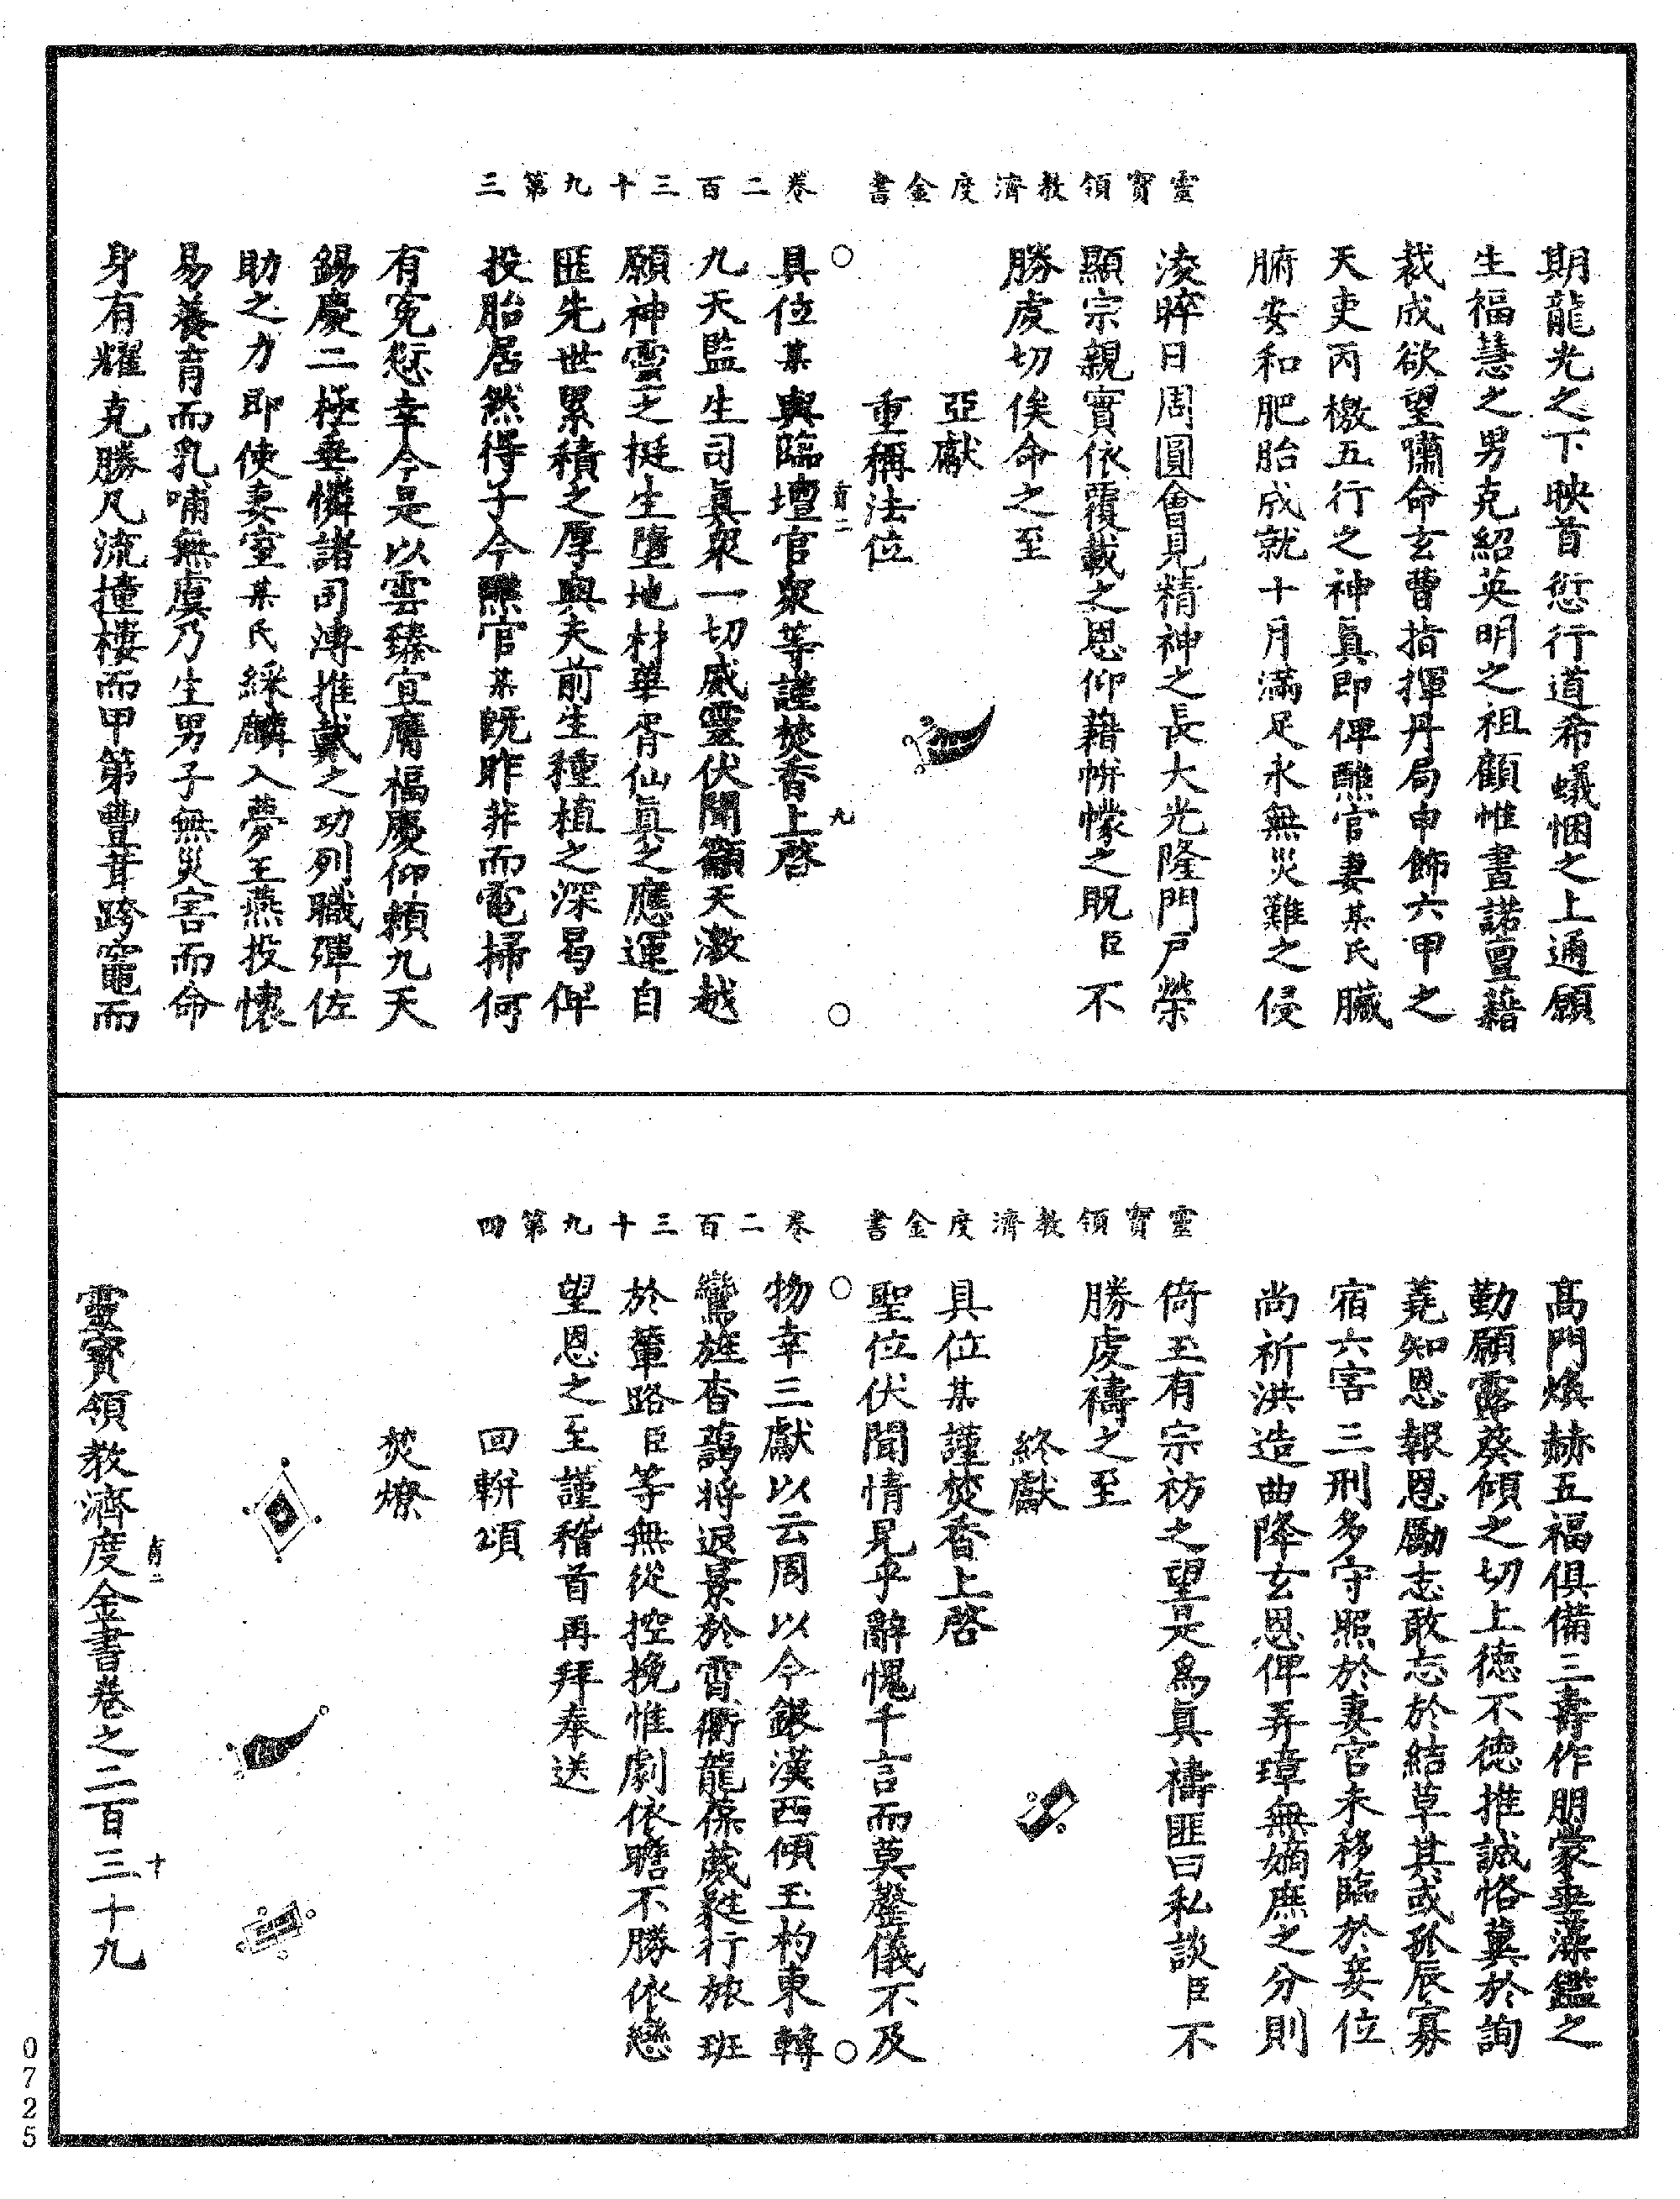 靈寶領教濟度金書　卷二百三十九第三
期龍光之下映首愆行道希蟻悃之上通願
生福慧之男克紹英明之祖顧惟晝諾亶藉
裁成欲望嘯命玄曹指揮丹局申飾六甲之
天吏丙檄五行之神眞即俾醮官妻某氏臟
腑安和肥胎成就十月滿足永無災難之侵
淩晬日周圓會見精神之長大光隆門戶榮
顯宗親實依覆載之恩仰藉帡幪之貺臣不
勝虔切俟命之至
亞獻
重稱法位
有二　九
具位某與臨壇官衆等謹焚香上啓
九天監生司眞衆一切威靈伏聞籲天激越
願神靈之挺生墮地材華胥仙眞之應運自
匪先世累積之厚與夫前生種植之深曷俾
投胎居然得子今醮官某旣昨菲而電掃何
有寃愆幸今是以雲臻宜膺福慶仰賴九天
錫慶二極垂憐諸司溥推戴之功列職殫佐
助之力即使妻室某氏綵麟入夢玉燕投懷
易養育而乳哺無虞乃生男子無災害而命
身有耀克勝凡流撞樓而甲第豐茸跨竈而
靈寶領教濟度金書　卷二百三十九第四
髙門煥赫五福俱備三壽作朋蒙垂藻鑑之
勤願露葵傾之切上德不德推誠恪冀於詢
蕘知恩報恩勵志敢忘於結草其或孤辰寡
宿六害三刑多守照於妻宮未移臨於妾位
尚祈洪造曲降玄恩俾弄璋無嫡庶之分則
倚玉有宗祊之望是爲眞禱匪曰私談臣不
勝虔禱之至
終獻
具位某謹焚香上啓
聖位伏聞情見乎辭愧千言而莫罄儀不及
物幸三獻以云周以今銀漢西傾玉杓東轉
鸞旌杳藹將返景於霄衢龍葆葳蕤行旅班
於輦路臣等無從控挽惟劇依瞻不勝依戀
望恩之至謹稽首再拜奉送
回軿頌
焚燎
有二　十
靈寶領教濟度金書卷之二百三十九
0725